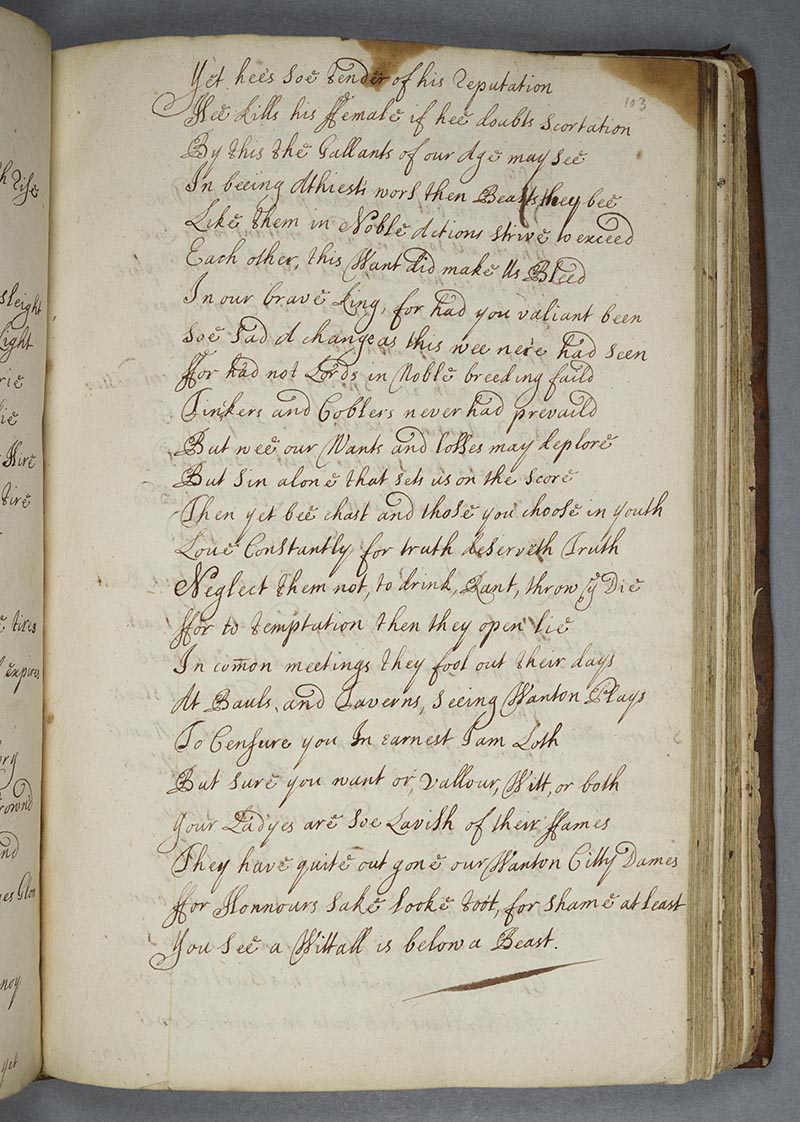 103
Yet hee's Soe tender of his Reputation
Hee kills his ffemale if hee doubts Scortation
By this the Gallants of our Age may See
In beeing Athiests wors then Beasts they bee
Like them in Noble Actions Strive to exceed
Each other, this Want did make Us Bleed
In our brave King, for had you valiant been
Soe Sad A change as this wee nere had Seen
ffor had not Lords in Noble breeding faild
Tinkers and Coblers never had prevaild
But wee our Wants and losses may deplore
But Sin alone that sets us on the Score
Then yet bee chast and those you choose in youth
Love Constantly for truth deserveth Truth
Neglect them not, to drink, Rant, throw ye Die
ffor to temptation then they open lie
In com̄on meetings they fool out their days
At Bauls, and Taverns, Seeing Wanton Plays
To Censure you In earnest I am Loth
But Sure you want or, Vallour, Witt, or both
Your Ladyes are Soe Lavish of their ffames
They have quite out gone our Wanton Citty Dames
ffor Honnours Sake looke toot, for Shame at least
You See a Wittall is below a Beast.
sleight
Light
Wire
tire
tires
expires